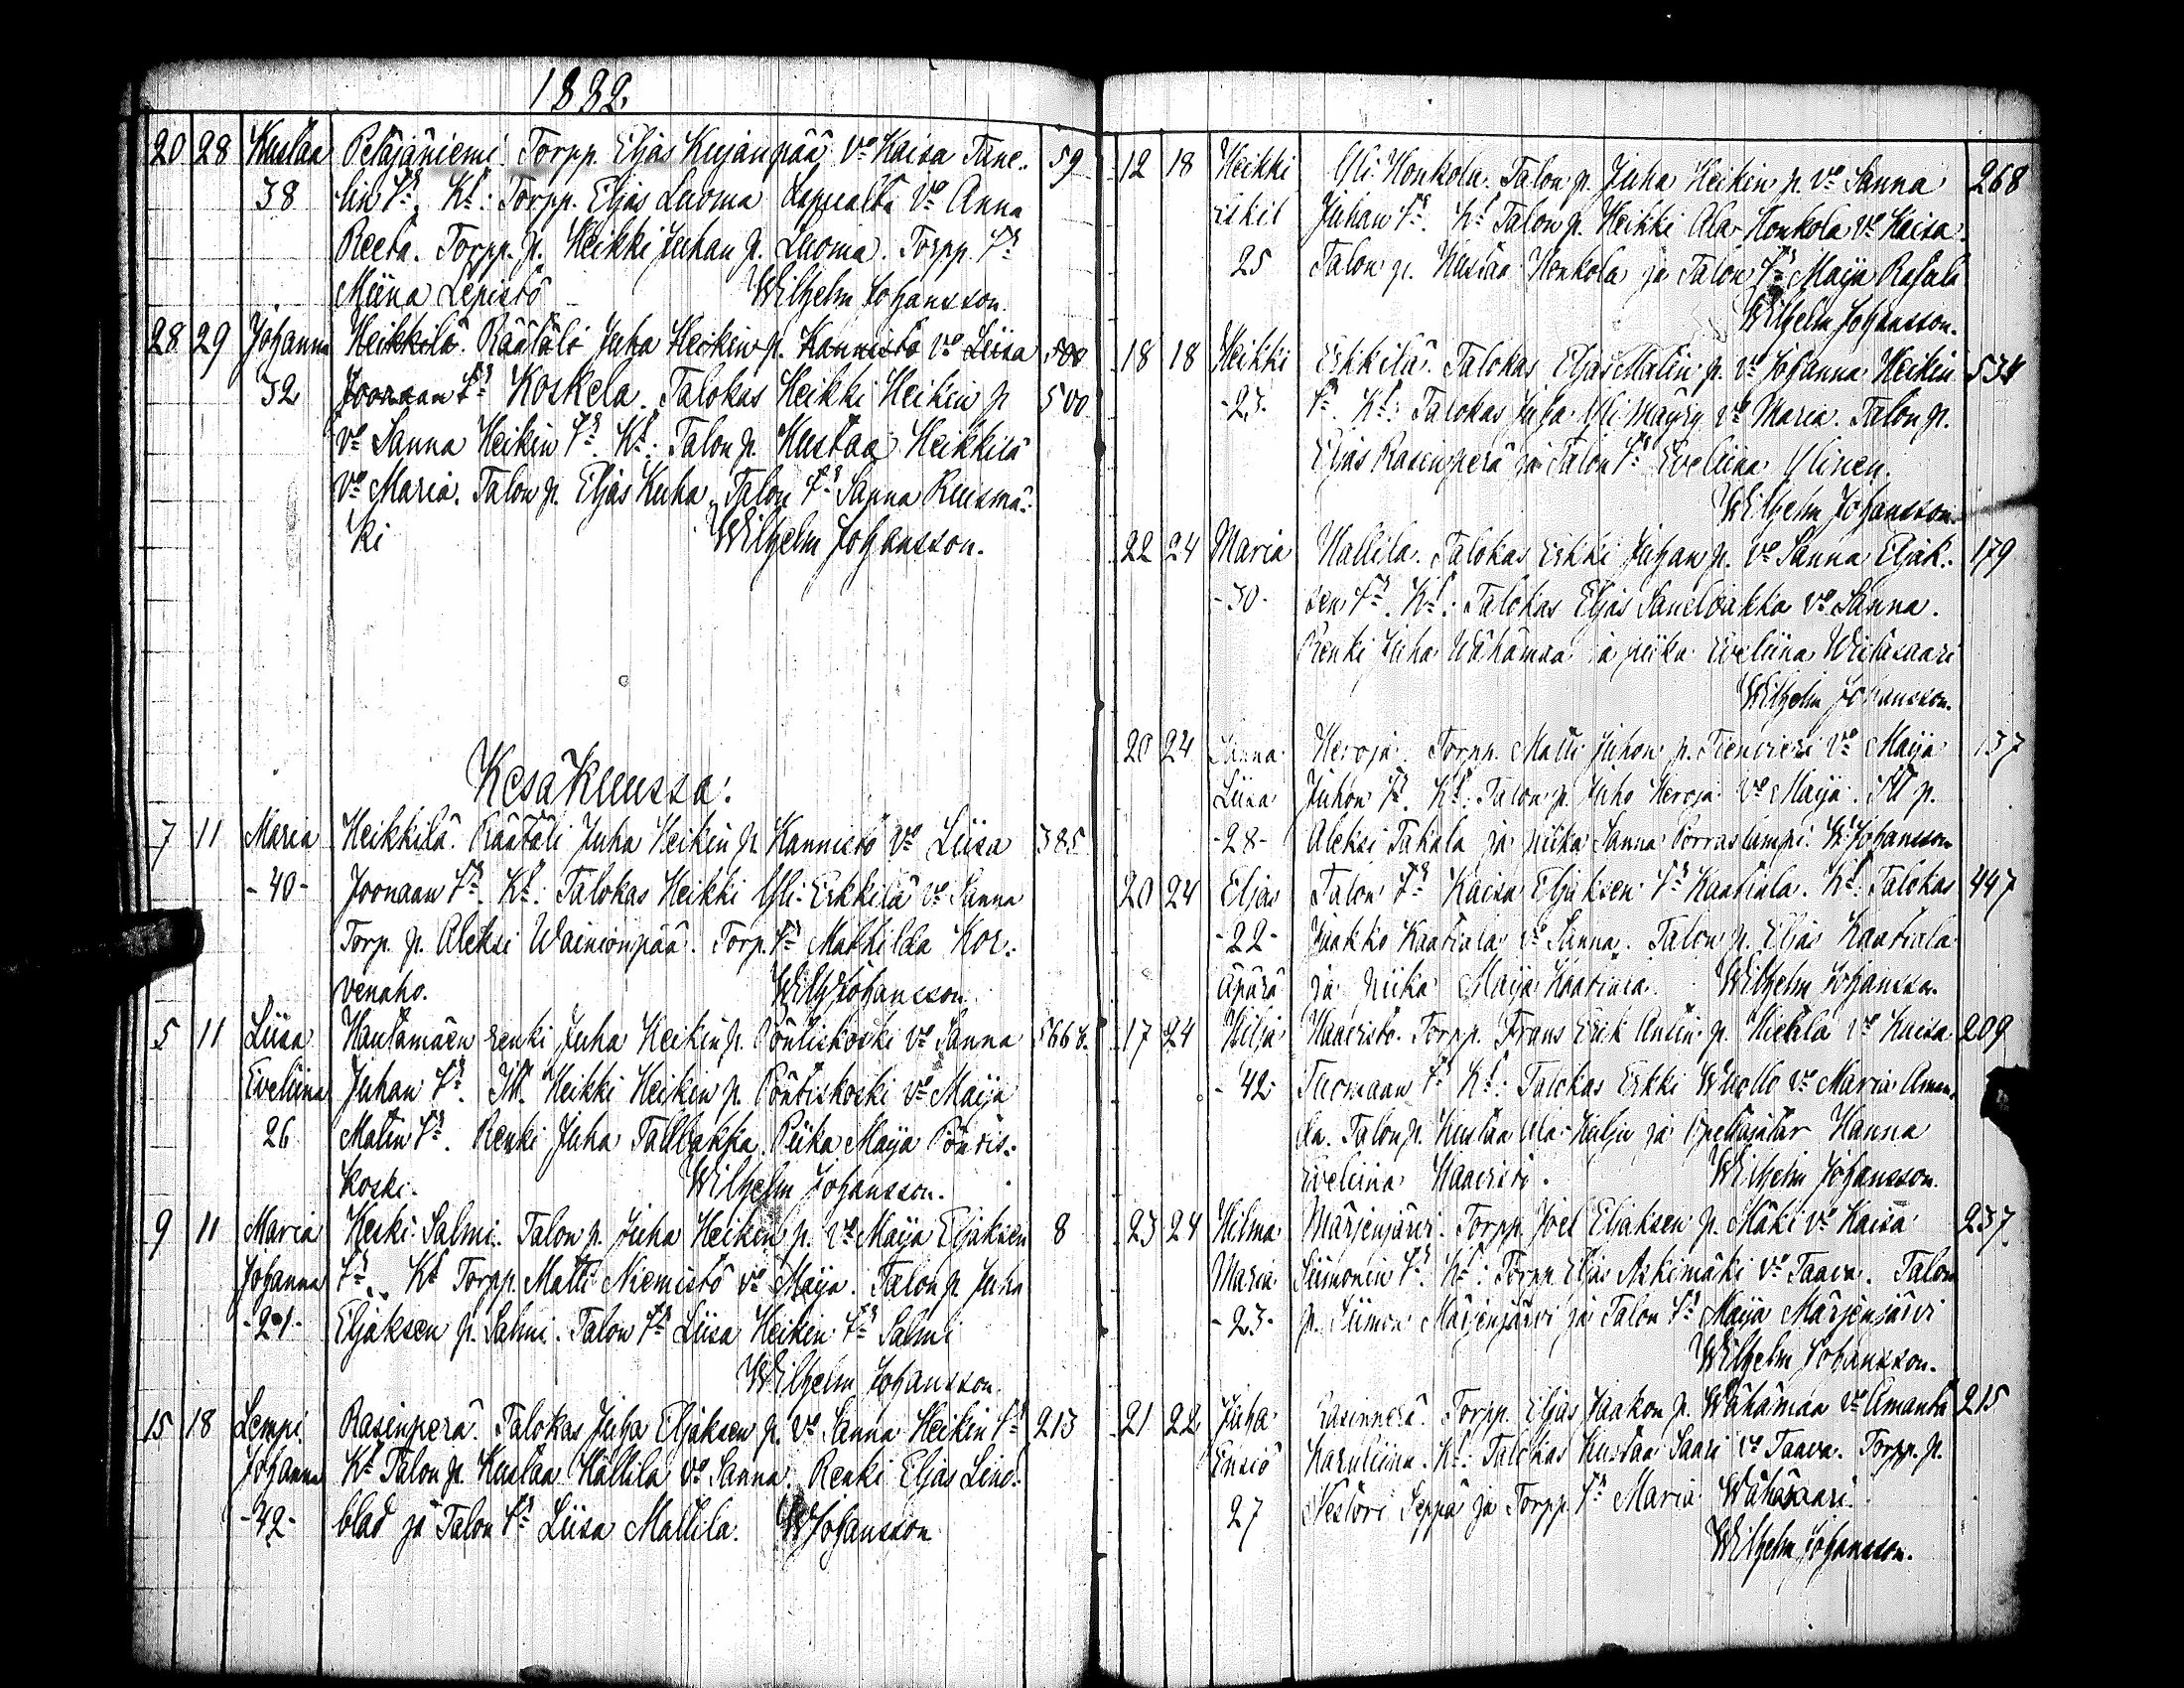 1882.
20 28 Kustaa Petäjäniemi. Torpp. Eljas Kujanpää vo Kaisa Tane- 59
38 lin Tr. Kt: Torpp. Eljas Luoma Lappualta vo Anna
Reeta. Torpp. p. Heikki Juhan p. Luoma. Torpp. Tr
Miina Lepistö Wilhelm Johansson.
28 29 Johanna Heikkilä. Räätäli Juha Heikin p. Kannisto vo Liisa 500
32 Joonaan Tr Koskela. Talokas Heikki Heikin p 500
vo Sanna Heikin Tr. Kt: Talon p. Kustaa Heikkilä
vo Maria. Talon p. Eljas Kuha, Talon Tr Sanna Ruismä-
ki Wilhelm Johansson.
Kesäkuussa:
7 11 Maria Heikkilä. Räätäli Juha Heikin p. Kannisto vo Liisa 385
-40- Joonaan Tr. Kt: Talokas Heikki Yli-Erkkilä vo Sanna
Torp. p. Aleksi Wainionpää. Torp. Tr Mathilda Kor-
venaho. Wilh Johansson
5 11 Liisa Hautamäen renki Juha Heikin p. Pöntiskoski vo Sanna 566
Eveliina Juhan Tr. Heikki Heikin p. Pöntiskoski vo Maija
26 Matin Tr. Renki Juha Tallbakka. Piika Maija Pöntis-
koski. Wilhelm Johansson.
9 11 Maria Keski-Salmi. Talon p. Juha Heikin p. vo Maija Eljaksen 8
Johanna Tr. Kt Torpp. Matti Niemistö vo Maija. Talon p. Juha
-21- Eljaksen p. Salmi. Talon Tr Liisa Heikin Tr Salmi
Wilhelm Johansson.
15 18 Lempi Rasinperä. Talokas Juha Eljaksen p. vo Sanna Heikin Tr 213
Johanna Kt Talon p. Kustaa Hallila vo Sanna. Renki Eljas Lind-
-42- blad ja Talon Tr Liisa Mattila. W Johansson
12 18 Heikki Yli-Honkola. Talon p. Juha Heikin p. vo Sanna 268
Juhan Tr. Kt Talon p. Heikki Ala-Honkola vo Kaisa.
25 Talon p. Kustaa Honkola ja Talon Tr Maija
Wilhelm Johansson.
18 18 Heikki Erkkilä. Talokas Eljas Matin p. vo Johanna Heikin 534
-23- Tr. Kt: Talokas Juha Yli-Mäyry vo Maria. Talon p.
Eljas Rasinperä ja Talon Tr Eveliina Ylinen.
Wilhelm Johansson.
22 24 Maria Hallila. Talokas Erkki Juhan p. vo Sanna Eljak- 179
-30- sen Tr. Kt: Talokas Eljas vo Sanna.
Renki Juha Wähämaa ja piika Eveliina Wiitasaari
Wilhelm Johansson.
20 24 Sanna Heroja. Torpp. Matti Juhon p. Tienvieri vo Maija 137
Liisa Juhon Tr. Kt: Talon p. Juho Heroja vo Maija. p.
-28- Aleksi Takala ja piika Sanna Porraslampi. W. Johansson
20 24 Eljas Talon Tr Kaisa Eljaksen Tr Kaatiala. Kt: Talokas 447
-22- Jaakko Kaatiala vo Sanna. Talon p. Eljas Kaatiala
Äpärä ja piika Maija Kaatiala. Wilhelm Johansson.
17 24 Hilja Haaristo. Torpp. Frans Erik Antin p. Hietala vo Kaisa 209
-42- Tuomaan Tr Kt: Talokas Erkki Wuollo vo Maria Aman-
da. Talon p. Kustaa Ala-Kulju ja Opettajatar Hanna
Eveliina Haaristo. Wilhelm Johansson.
23 24 Hilma Märjenjärvi. Torpp. Joel Eljaksen p. Mäki vo Kaisa 237
Maria Siimonin Tr. Kt: Torpp. Eljas Askimäki vo Taava. Talon
-23- p. Siimon Märjenjärvi ja Talon Tr Maija Märjenjärvi
Wilhelm Johansson.
21 22 Juha Rasinperä. Torpp. Eljas Jaakon p. Wähämaa vo Amanta 215
Ensio Karuliina. Kt: Talokas Kustaa Saari vo Taava. Torpp. p.
27 Nestori Seppä ja Torpp. Tr Maria Wähäsaari.
Wilhelm Johansson.